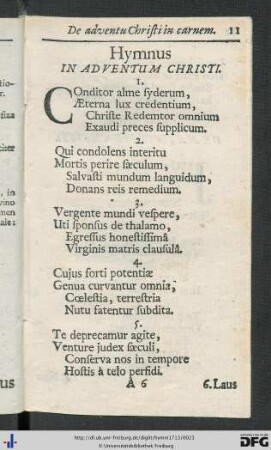 De adventu Christi in carnem. 11
Hymnus
IN ADVENTUM CHRISTI.
1.
COnditor alme syderum,
Æterna lux credentium,
Christe Redemtor omnium
Exaudi preces supplicum.
2.
Qui condolens interitu
Mortis perire sæculum,
Salvasti mundum languidum,
Donans reis remedium.
3.
Vergente mundi vespere,
Uti sponsus de thalamo,
Egressus honestissimâ
Virginis matris clausulâ.
4.
Cujus forti potentiæ
Genua curvantur omnia,
Cœlestia, terrestria
Nutu fatentur subdita.
5.
Te deprecamur agite,
Venture judex sæculi,
Conserva nos in tempore
Hostis à telo perfidi.
A 6 6. Laus
http://dl.ub.uni-freiburg.de/diglit/hymni1713/0023
© Universitätsbibliothek Freiburg
gefördert durch die
DFG